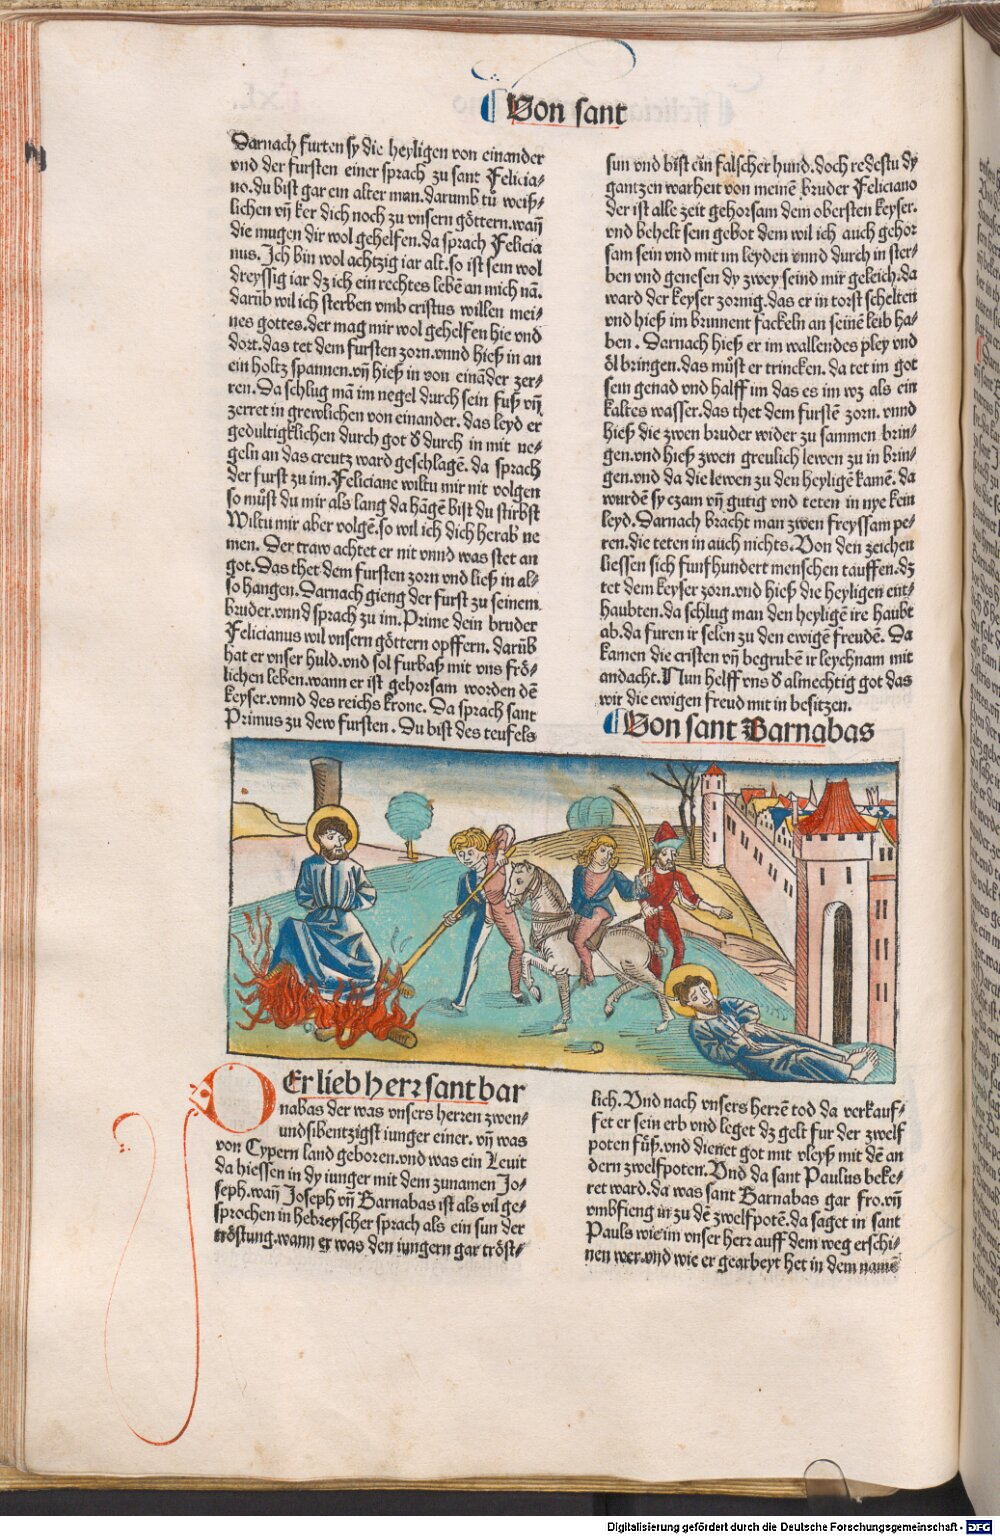 Von sant
Darnach furten sy die heyligen von einander
vnd der fursten einer sprach zu sant Felicia⸗
no.du bist gar ein alter man.darumb tů weiß⸗
lichen vñ ker dich noch zu vnsern göttern.wañ
die mugen dir wol gehelfen.da sprach Felicia
nus.Ich bin wol achtzig iar alt.so ist sein wol
dreyssig iar dz ich ein rechtes lebē an mich nā.
darūb wil ich sterben vmb cristus willen mei⸗
nes gottes.der mag mir wol gehelfen hie vnd
dort.das tet dem fursten zorn.vnnd hieß in an
ein holtz spannen.vñ hieß in von eināder zer⸗
ren.Da schlug mā im negel durch sein fuß vñ
zerret in grewlichen von einander.das leyd er
gedultigklichen durch got d durch in mit ne⸗
geln an das creutz ward geschlagē.da sprach
der furst zu im.Feliciane wiltu mir nit volgen
so můst du mir als lang da hāgē bist du stirbst
Wiltu mir aber volgē.so wil ich dich herab ne
men. Der traw achtet er nit vnnd was stet an
got.Das thet dem fursten zorn vnd ließ in al⸗
so hangen.Darnach gieng der furst zu seinem
bruder.vnnd sprach zu im.Prime dein bruder
Felicianus wil vnsern göttern opffern. darūb
hat er vnser huld.vnd sol furbaß mit vns frö⸗
lichen leben.wann er ist gehorsam worden dē
keyser.vnnd des reichs krone. Da sprach sant
Primus zu dew fursten. Du bist des teufels
sun vnd bist ein falscher hund.doch redestu dy
gantzen warheit von meinē bruder Feliciano
der ist alle zeit gehorsam dem obersten keyser.
vnd behelt sein gebot dem wil ich auch gehor
sam sein vnd mit im leyden vnnd durch in ster⸗
ben vnd genesen dy zwey seind mir geleich.da
ward der keyser zornig.das er in torst schelten
vnd hieß im brunnent fackeln an seinē leib ha⸗
ben. Darnach hieß er im wallendes pley vnd
öl bringen.das můst er trincken. da tet im got
sein genad vnd halff im das es im wz als ein
kaltes wasser.das thet dem furstē zorn. vnnd
hieß die zwen bruder wider zu sammen brin⸗
gen.vnd hieß zwen greulich lewen zu in brin⸗
gen.vnd da die lewen zu den heyligē kamē. da
wurdē sy czam vñ gutig vnd teten in nye kein
leyd.Darnach bracht man zwen freyssam pe⸗
ren.die teten in auch nichts.Von den zeichen
liessen sich funfhundert menschen tauffen.dz
tet dem keyser zorn.vnd hieß die heyligen ent⸗
haubten.da schlug man den heyligē ire haubt
ab.da furen ir selen zu den ewigē freudē. Da
kamen die cristen vñ begrubē ir leychnam mit
andacht.Nun helff vns d almechtig got das
wir die ewigen freud mit in besitzen.
Von sant Barnabas
DEr lieb herr sant bar
nabas der was vnsers herren zwen⸗
undsibentzigst iunger einer. vñ was
von Cypern land geboren.vnd was ein Leuit
da hiessen in dy iunger mit dem zunamen Jo⸗
seph.wañ Joseph vñ Barnabas ist als vil ge⸗
sprochen in hebreyscher sprach als ein sun der
tröstung.wann er was den iungern gar tröst⸗
lich. Vnd nach vnsers herrē tod da verkauf⸗
fet er sein erb vnd leget dz gelt fur der zwelf
poten füß.vnd dienet got mit vleyß mit dē an
dern zwelfpoten.Vnd da sant Paulus beke⸗
ret ward.da was sant Barnabas gar fro.vñ
vmbfieng in zu dē zwelfpotē.da saget in sant
Pauls wie im vnser herr auff dem weg erschi⸗
nen wer.vnd wie er gearbeyt het in dem namē
Digitalisierung gefördert durch die Deutsche Forschungsgemeinschaft - DFG